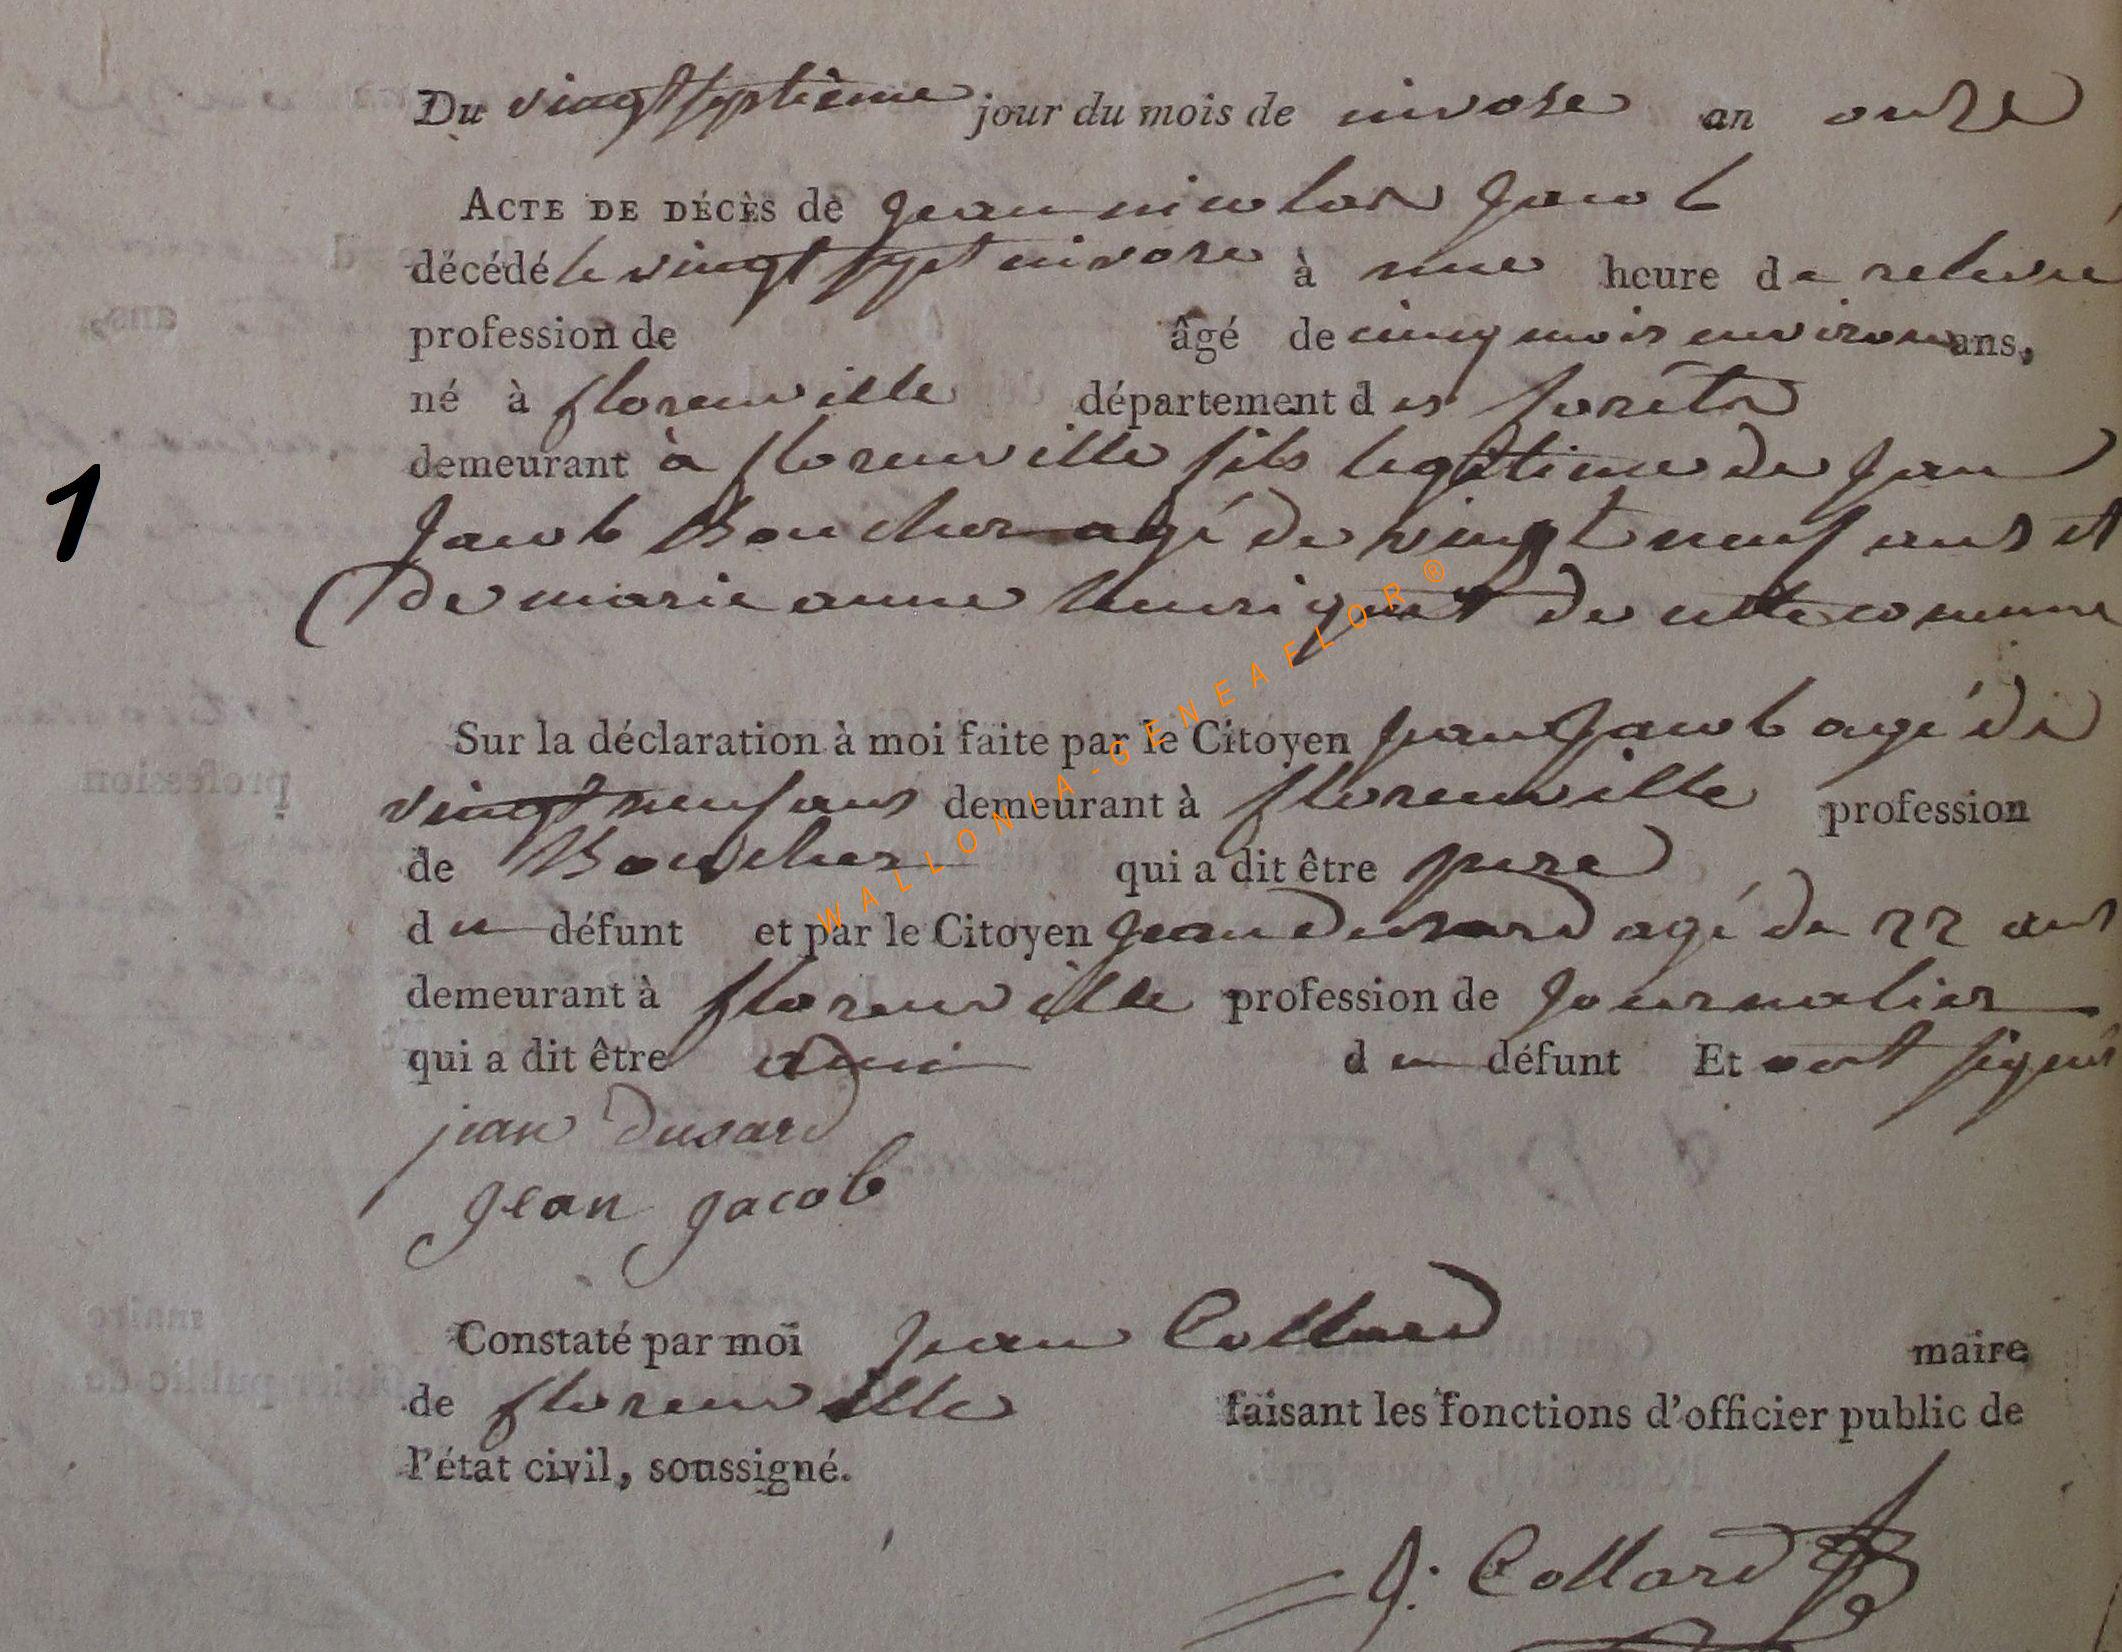 Du vingt septième jour du mois de nivose an onze
ACTE DE DÉCÈS de jean nicolas jacob
décédé le vingt sept nivose à une heure de relevée
profession de âgé de cinq mois environ ans,
né à florenville département des forêts
demeurant à florenville fils legitime de jean
1
jacob Boucher agé de vingt neuf ans et
de marie anne henriquet de cette commune
Sur la déclaration à moi faite par le Citoyen jean jacob agé de
vingt neuf ans demeurant à florenville profession
de Boucher qui a dit être pere
du défunt et par le Citoyen jean Dusard agé de 22 ans
demeurant à florenville profession de journalier
qui a dit être ami du défunt Et ont signé
jean dusard
jean jacob
Constaté par moi jean Collard maire
de florenville faisant les fonctions d'officier public de
l'état civil, soussigné.
J. Collard
WALLONIA-GENEAFLOR ®